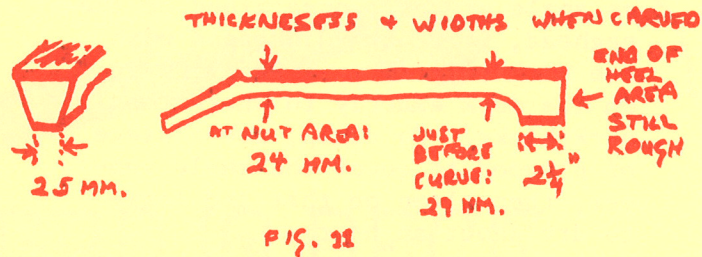 THICKNESSES & WIDTHS WHEN CARVED
END OF
HEEL
AREA
STILL
ROUGH
AT NUT AREA:
24 MM.
JUST
BEFORE
CURVE:
29 MM.
2 1/4"
25 MM.
FIG. 22